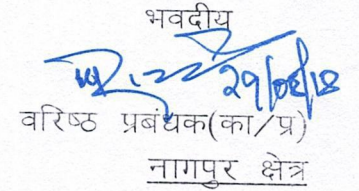 भवदीय
29/06/18
वरिष्ठ प्रबंधक(का/प्र)
नागपुर क्षेत्र